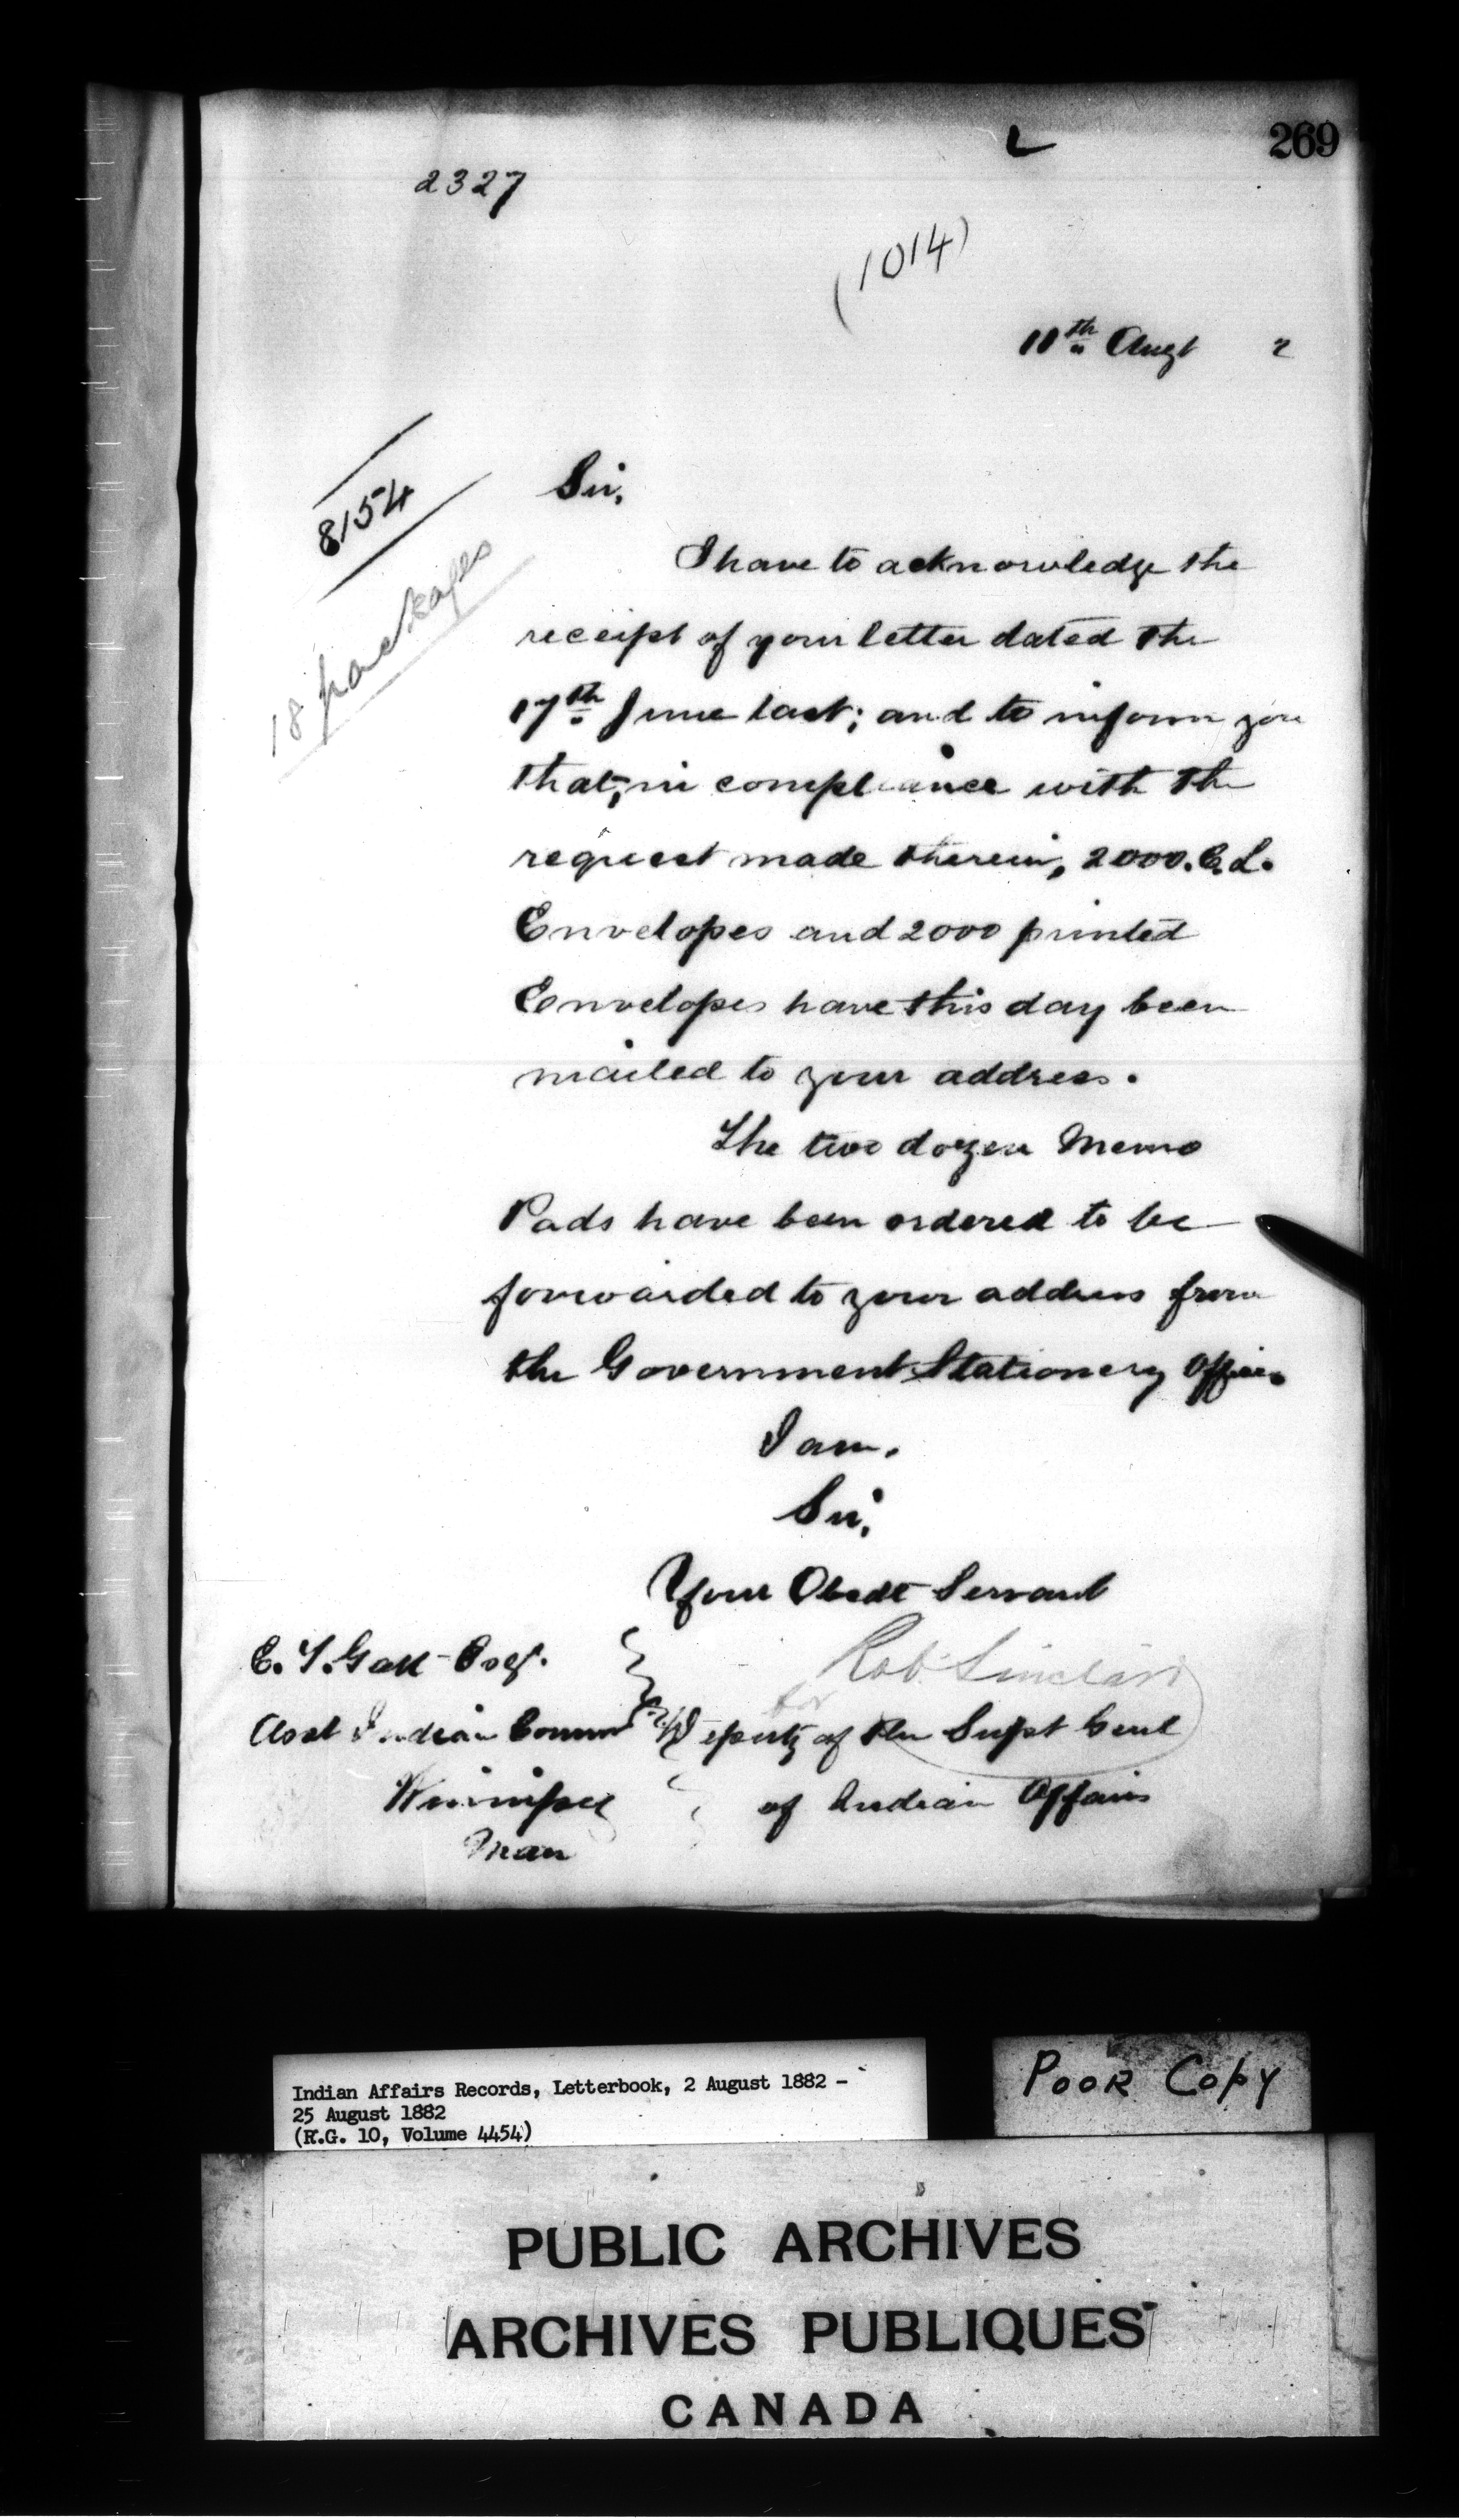 269
2327
(1014)
11th Augt 2
8154
18 packages
Sir,
I have to acknowledge the
receipt of your letter dated the
17th June last; and to inform you
that, in compliance with the
request made therein, 2000. C. L.
Envelopes and 2000 printed
Envelopes have this day been
mailed to your address.
The two dozen Memo
Pads have been ordered to be
forwarded to your address from
the Government Stationery Office.
I am.
Sir,
Your Obedt Servant
E. T. Galt Esq.
Rob. Sinclair
Asst Indian Commr
for Deputy of the Supt Genl
Winnipeg
of Indian Affairs
Man
Indian Affairs Records, Letterbook, 2 August 1882 -
25 August 1882
(R.G. 10, Volume 4454)
POOR COPY
PUBLIC ARCHIVES
ARCHIVES PUBLIQUES
CANADA